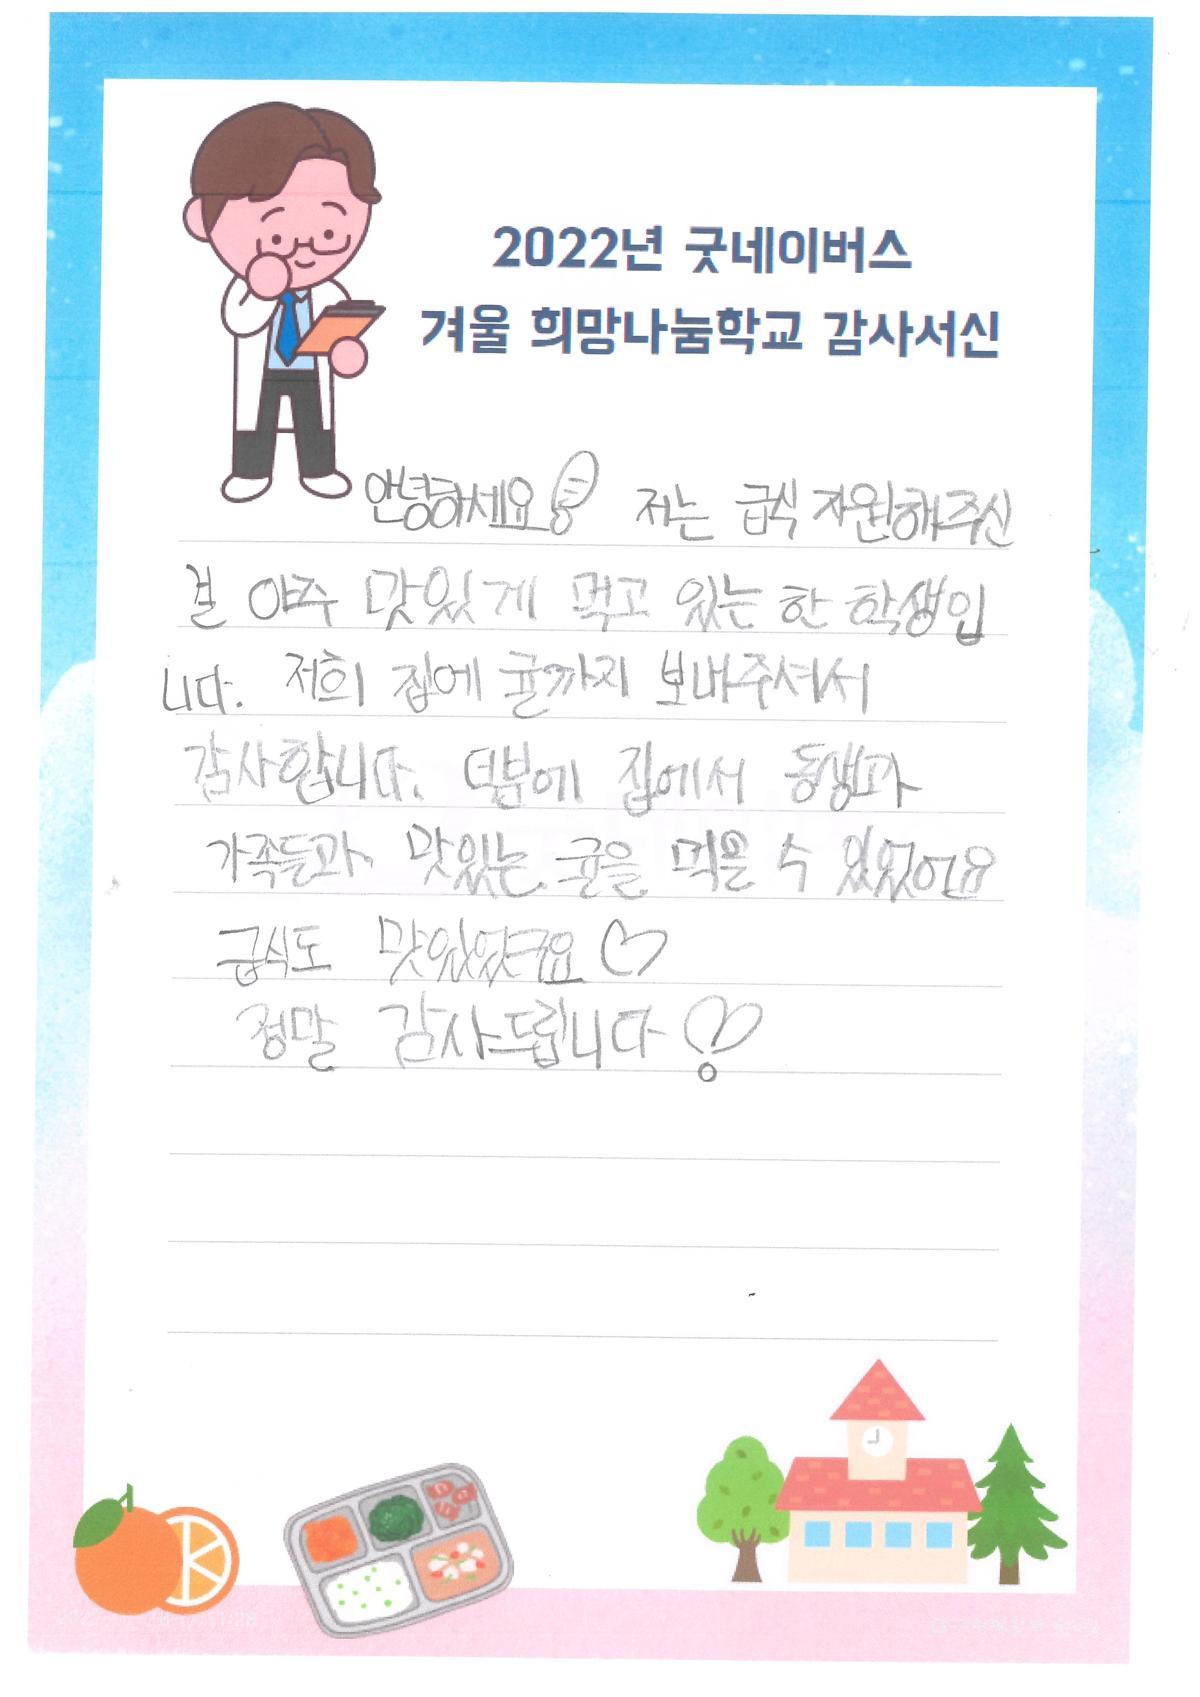 2022년 굿네이버스
겨울 희망나눔학교 감사서신
안녕하세요! 저는 급식 자원해주신
걸 아주 맛있게 먹고 있는 한 학생입
니다. 저희 집에 귤까지 보내주셔서
감사합니다. 덕분에 집에서 동생과
가족들과 맛있는 귤을 먹을 수 있었어요
급식도 맛있었구요♡
정말 감사드립니다